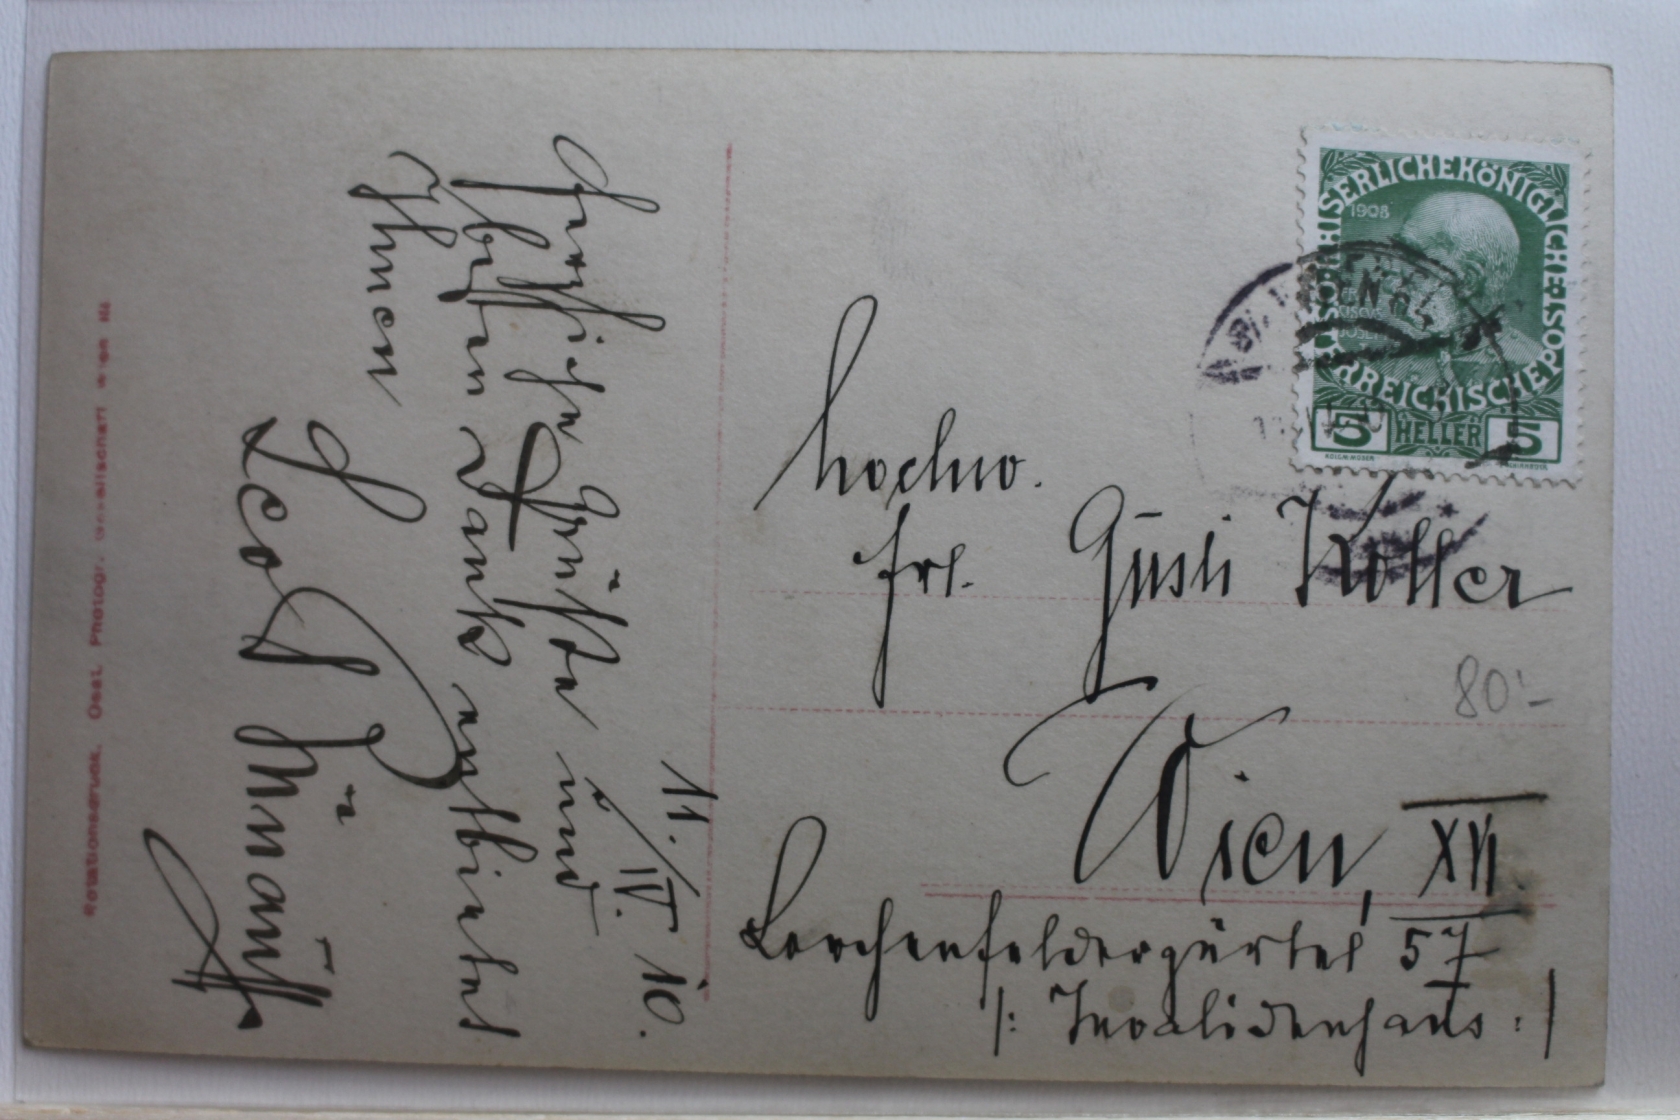 11./IV. 10.
Herzlichen Grüße und
besten Dank entbietet
Ihnen
hochw.
Frl. Gusti Koller
Wien, XVI.
Lerchenfeldergürtel 57
|: Invalidenhaus :|
80.-
KAISERLICHE KÖNIGLICHE ÖSTERREICHISCHE POST
1908
5 HELLER 5
Rotationsdruck. Photogr. Gesellschaft Wien III